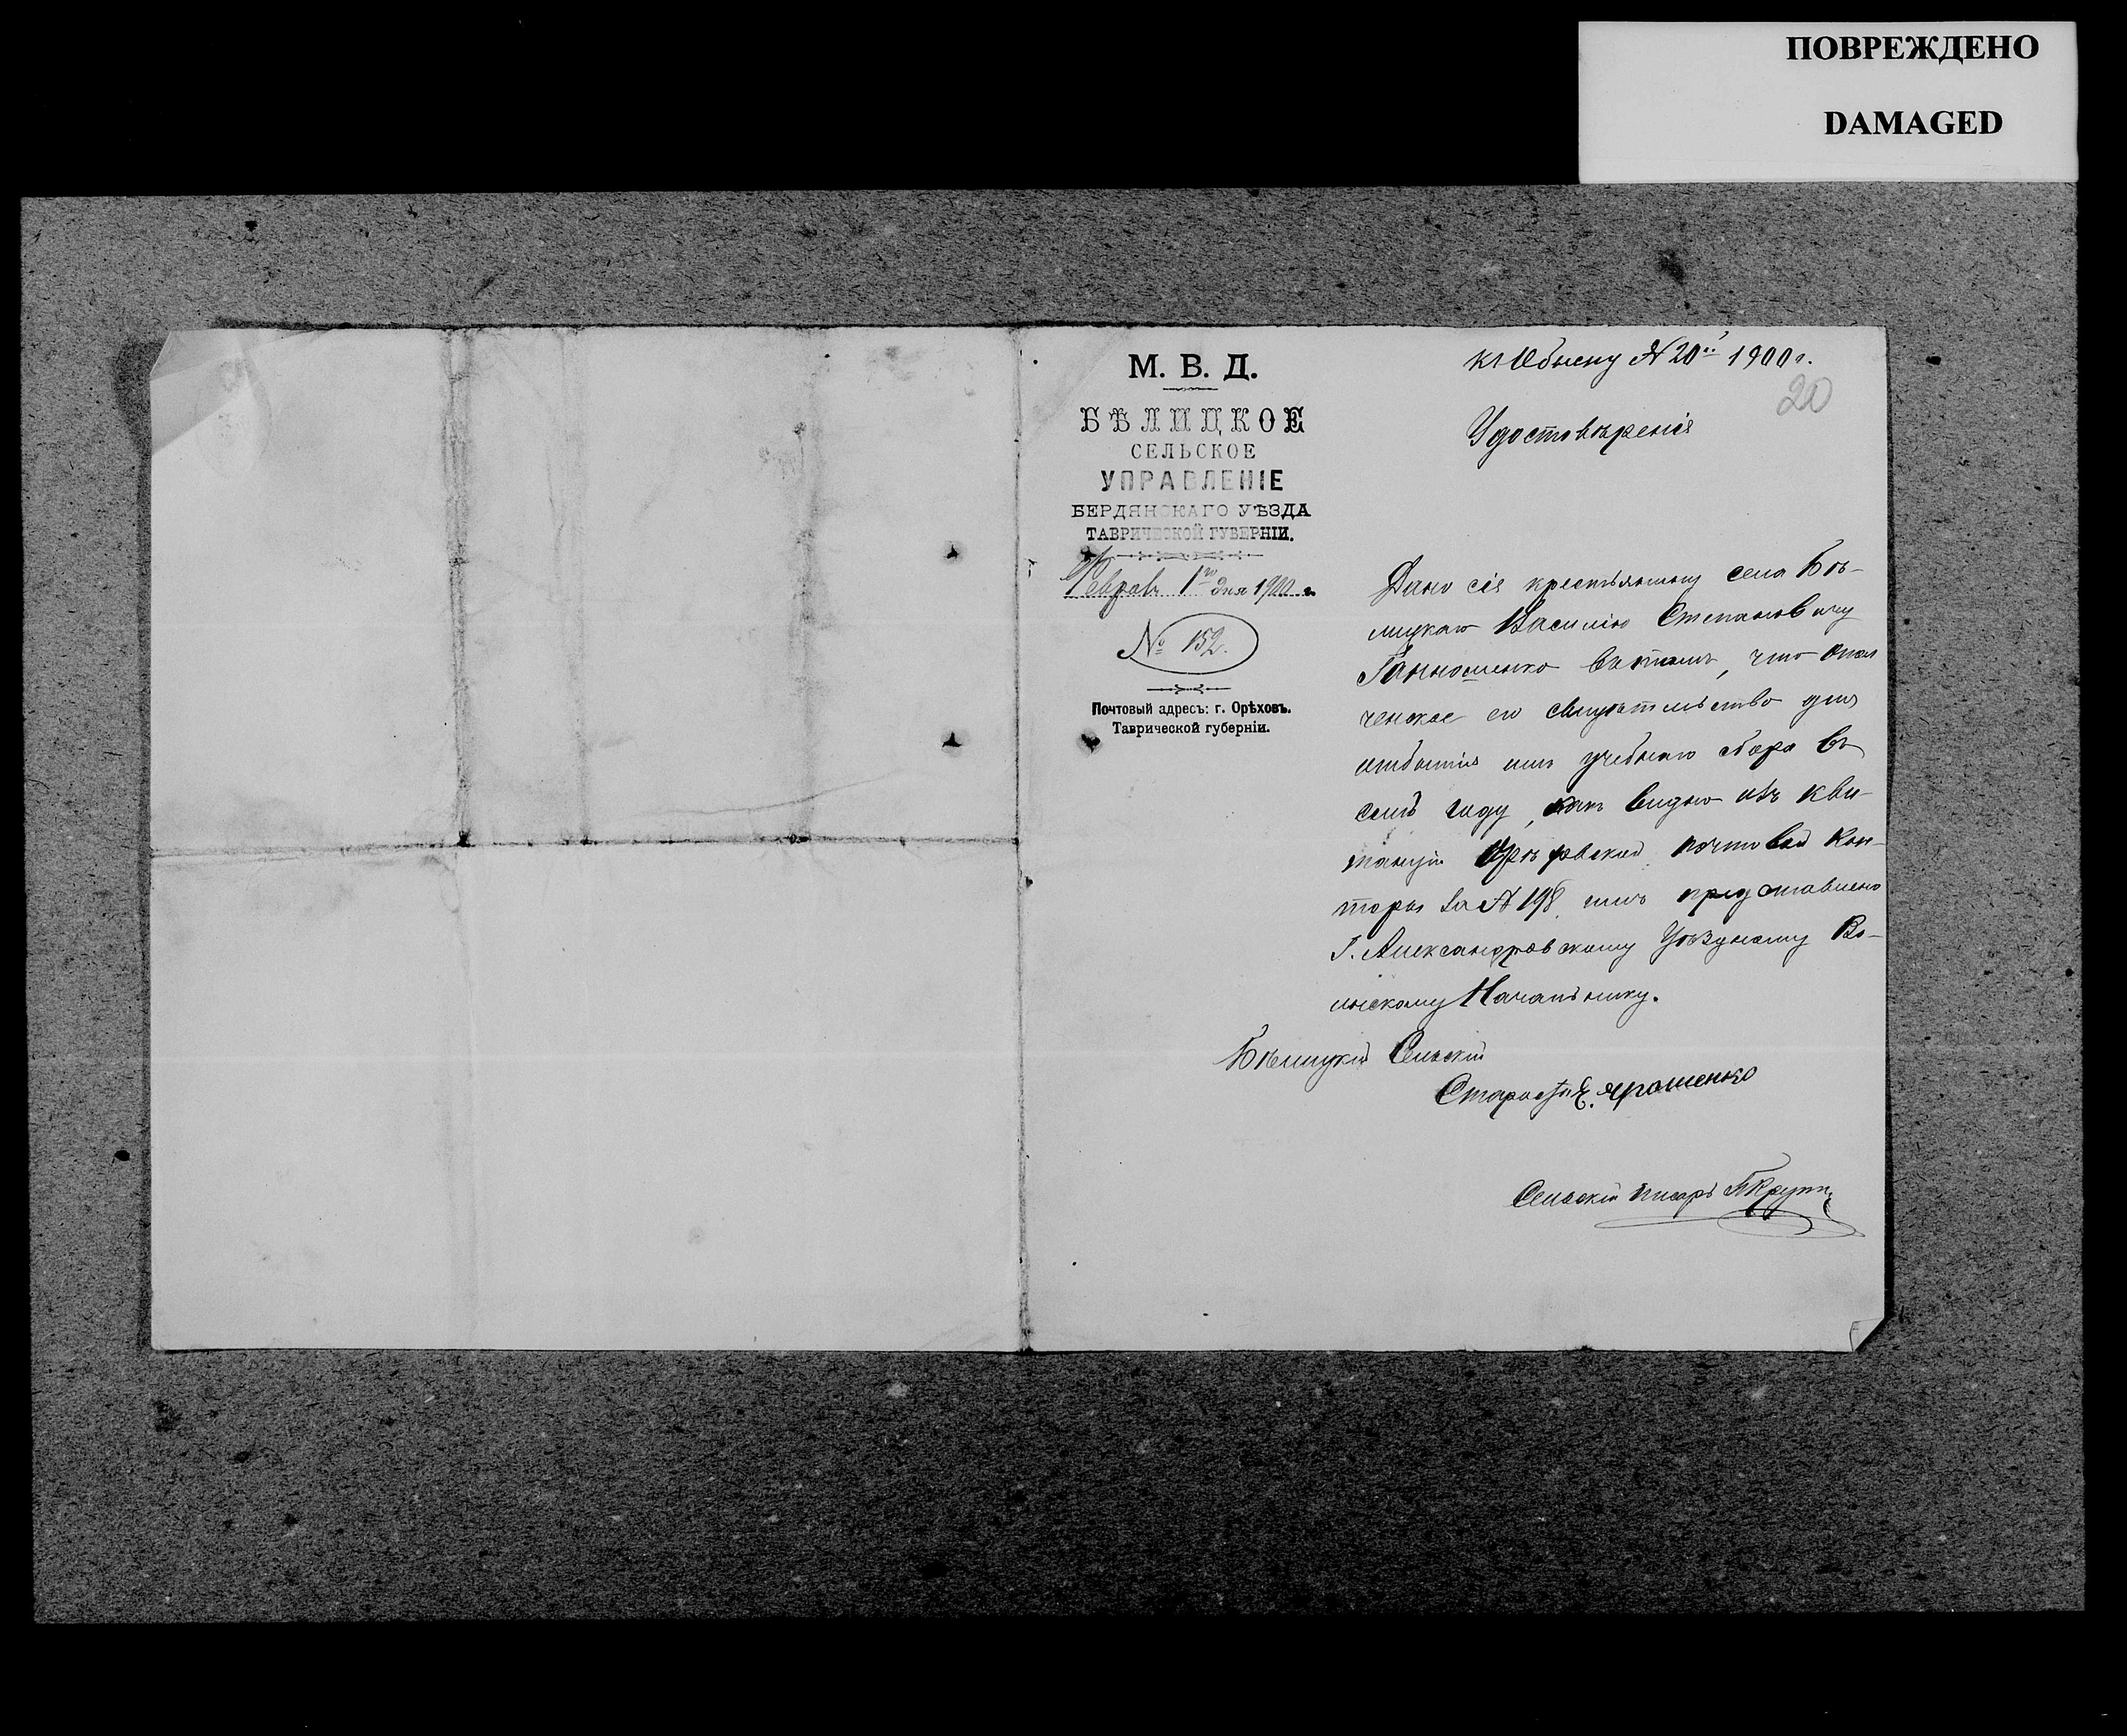 ПОВРЕЖДЕНО
DAMAGED
М. В. Д.
БѢЛИЦКОЕ
СЕЛЬСКОЕ
УПРАВЛЕНІЕ
БЕРДЯНСКАГО УѢЗДА
ТАВРИЧЕСКОЙ ГУБЕРНІИ.
Февраль 1го дня 1900 г.
№ 152.
Почтовый адресъ: г. Орѣховъ.
Таврической губерніи.
къ Обыску № 20й 1900 г.
20
Удостовѣреніе
Дано сіе крестьянину села Бѣ-
лицкаго Василію Степановичу
въ томъ, что опол
ченское его свидѣтельство для
отбытія имъ учебнаго сбора въ
семъ году, какъ видно изъ кви-
танціи Орѣховской почтовой кон-
торы за № 198 имъ представлено
Г. Александровскому Уѣздному Во-
инскому Начальнику.
Бѣлицкій Сельскій
Староста Е. Ярошенко
Сельскій писарь